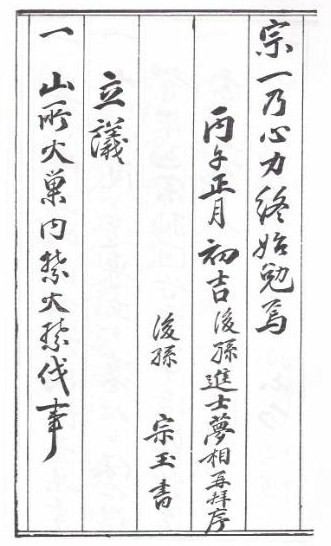 宗一乃心力終始勉焉
丙午正月初吉後孫進士夢相再拜序
後孫 宗玉書
立議
一 山所火巢内禁火禁伐事